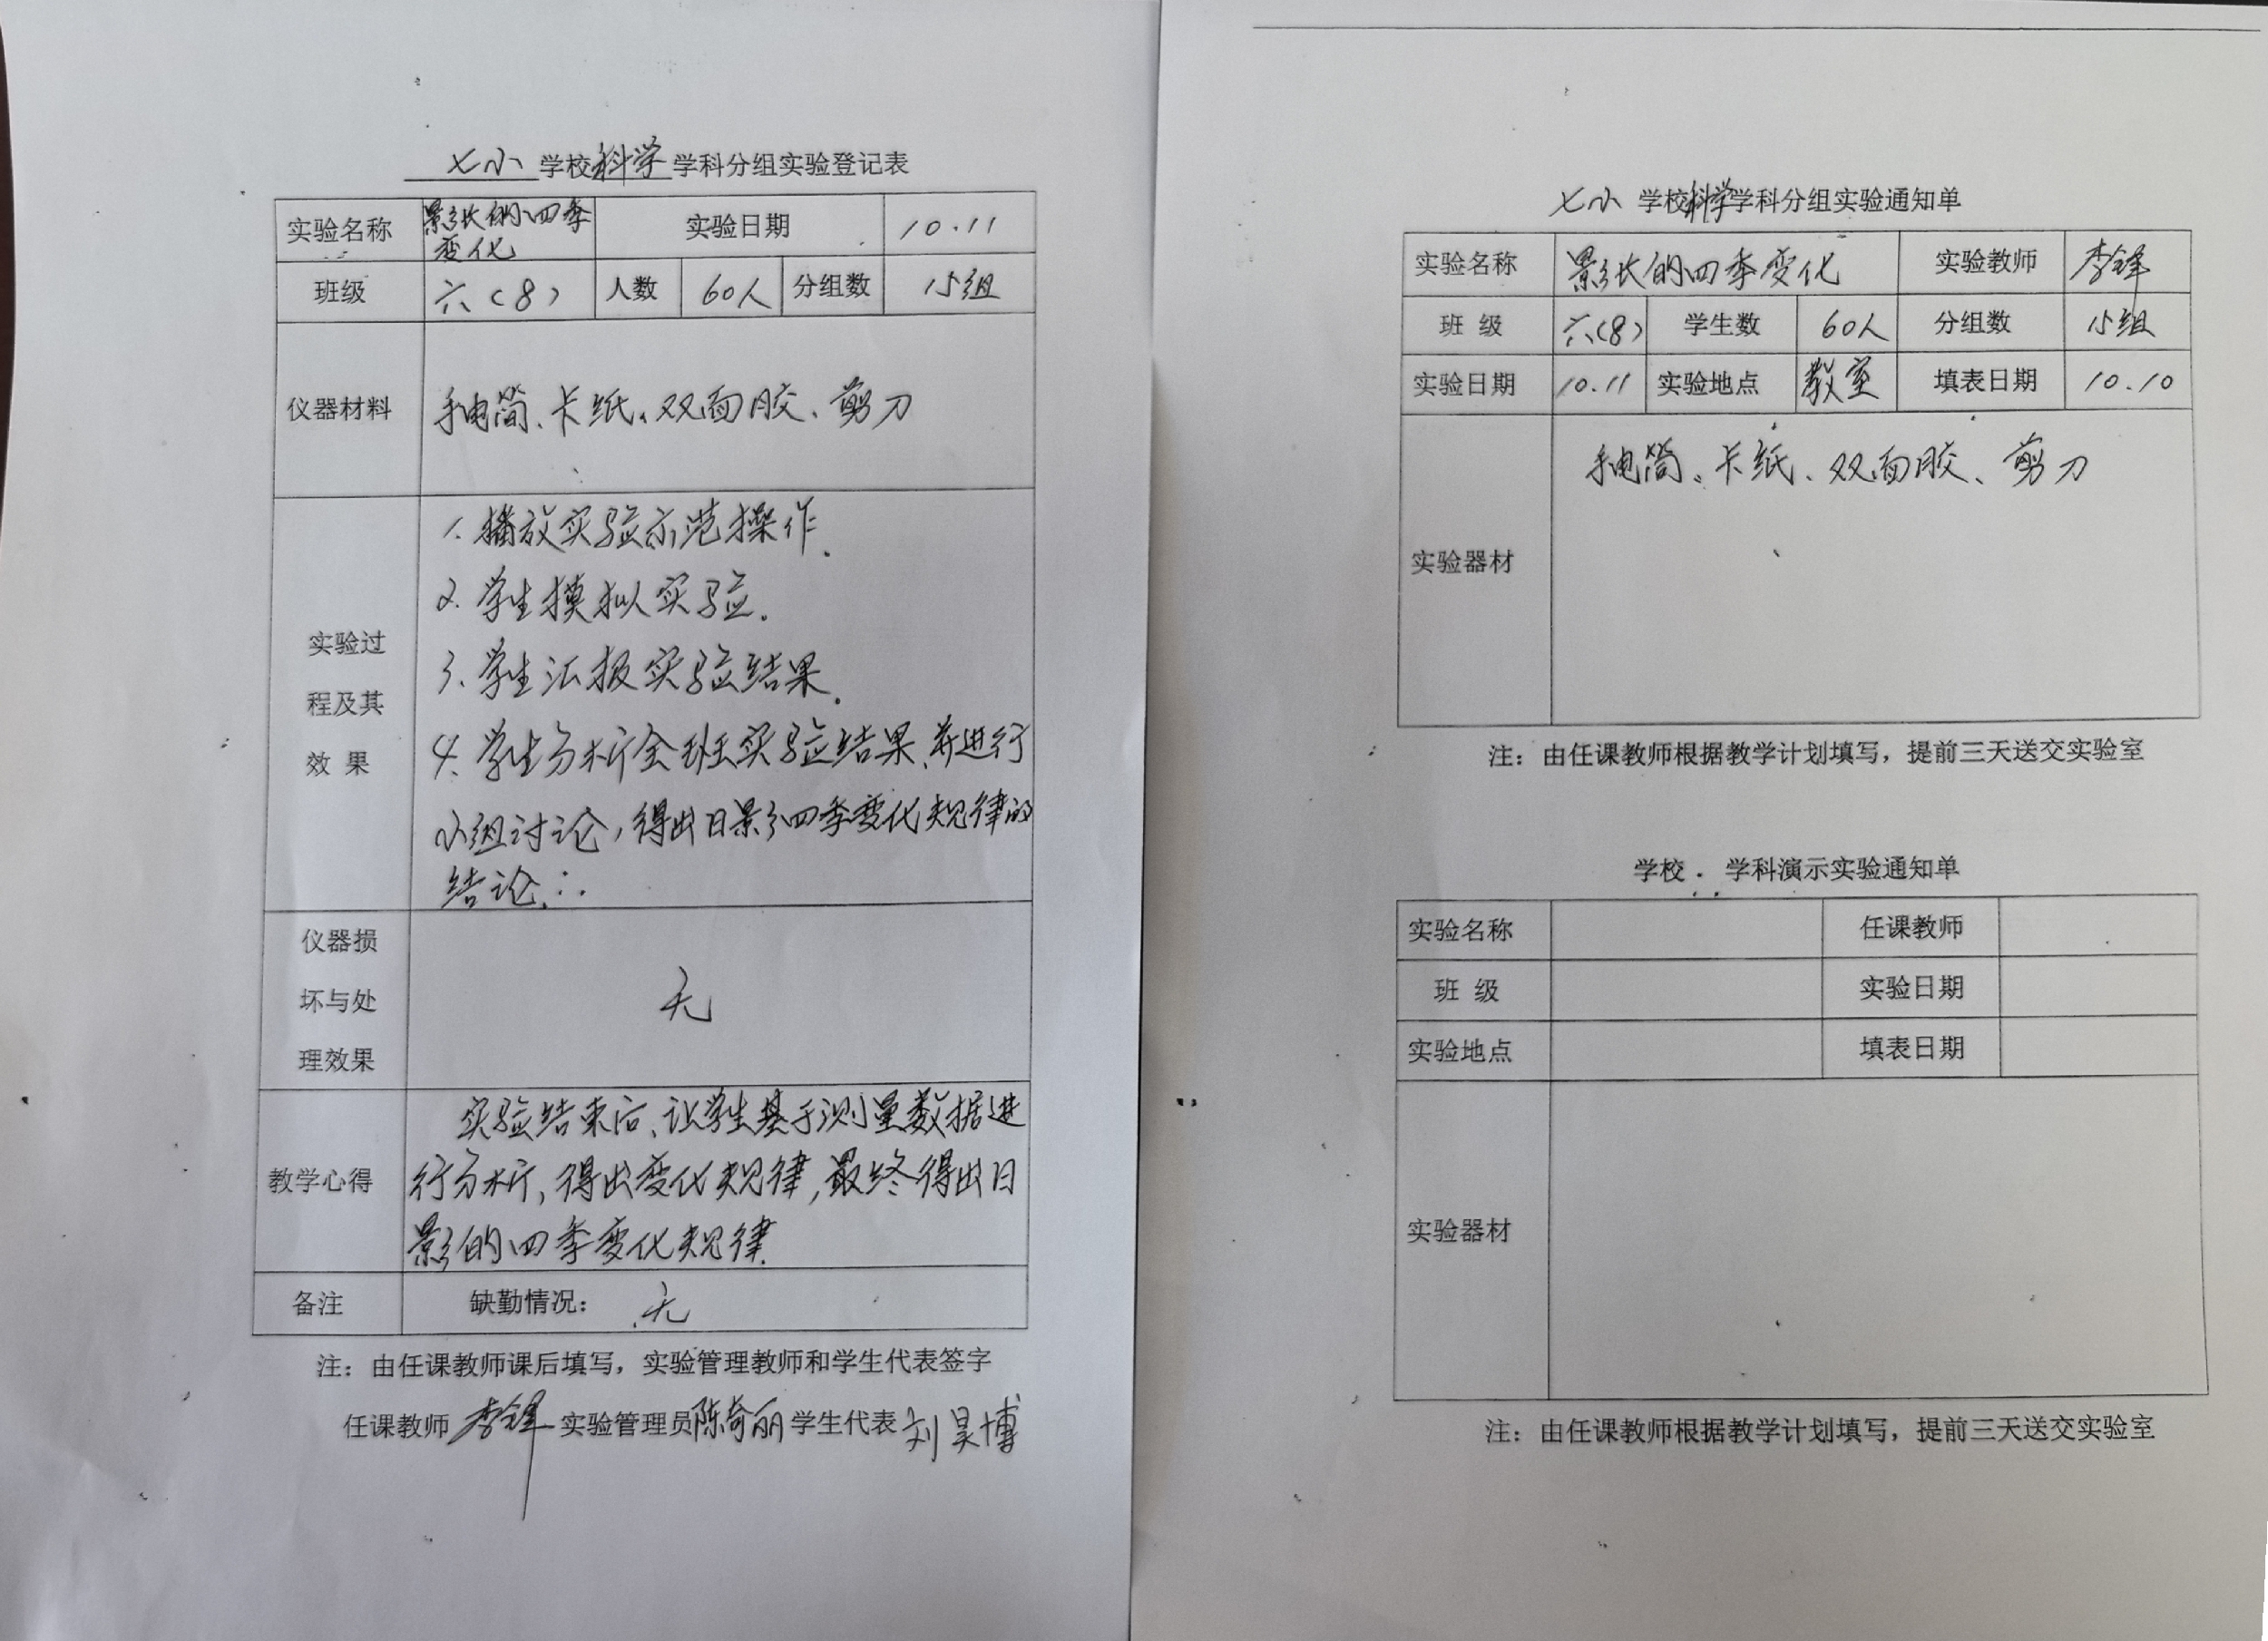 七小 学校 科学 学科分组实验登记表
实验名称 影长的四季变化 实验日期 10.11
班级 六(8) 人数 60人 分组数 15组
仪器材料 手电筒、卡纸、双面胶、剪刀
实验过程及其效果
1. 播放实验示范操作.
2. 学生模拟实验.
3. 学生汇报实验结果.
4. 学生分析全班实验结果,并进行
小组讨论,得出日影四季变化规律的
结论.
仪器损坏与处理效果 无
教学心得
实验结束后、让学生基于测量数据进
行分析,得出变化规律,最终得出日
影的四季变化规律.
备注 缺勤情况: 无
注:由任课教师课后填写,实验管理教师和学生代表签字
任课教师 李锋 实验管理员 陈奇丽 学生代表 刘昊博
七小 学校 科学 学科分组实验通知单
实验名称 影长的四季变化 实验教师 李锋
班 级 六(8) 学生数 60人 分组数 15组
实验日期 10.11 实验地点 教室 填表日期 10.10
实验器材 手电筒、卡纸、双面胶、剪刀
注:由任课教师根据教学计划填写,提前三天送交实验室
学校 学科演示实验通知单
实验名称 任课教师
班 级 实验日期
实验地点 填表日期
实验器材
注:由任课教师根据教学计划填写,提前三天送交实验室